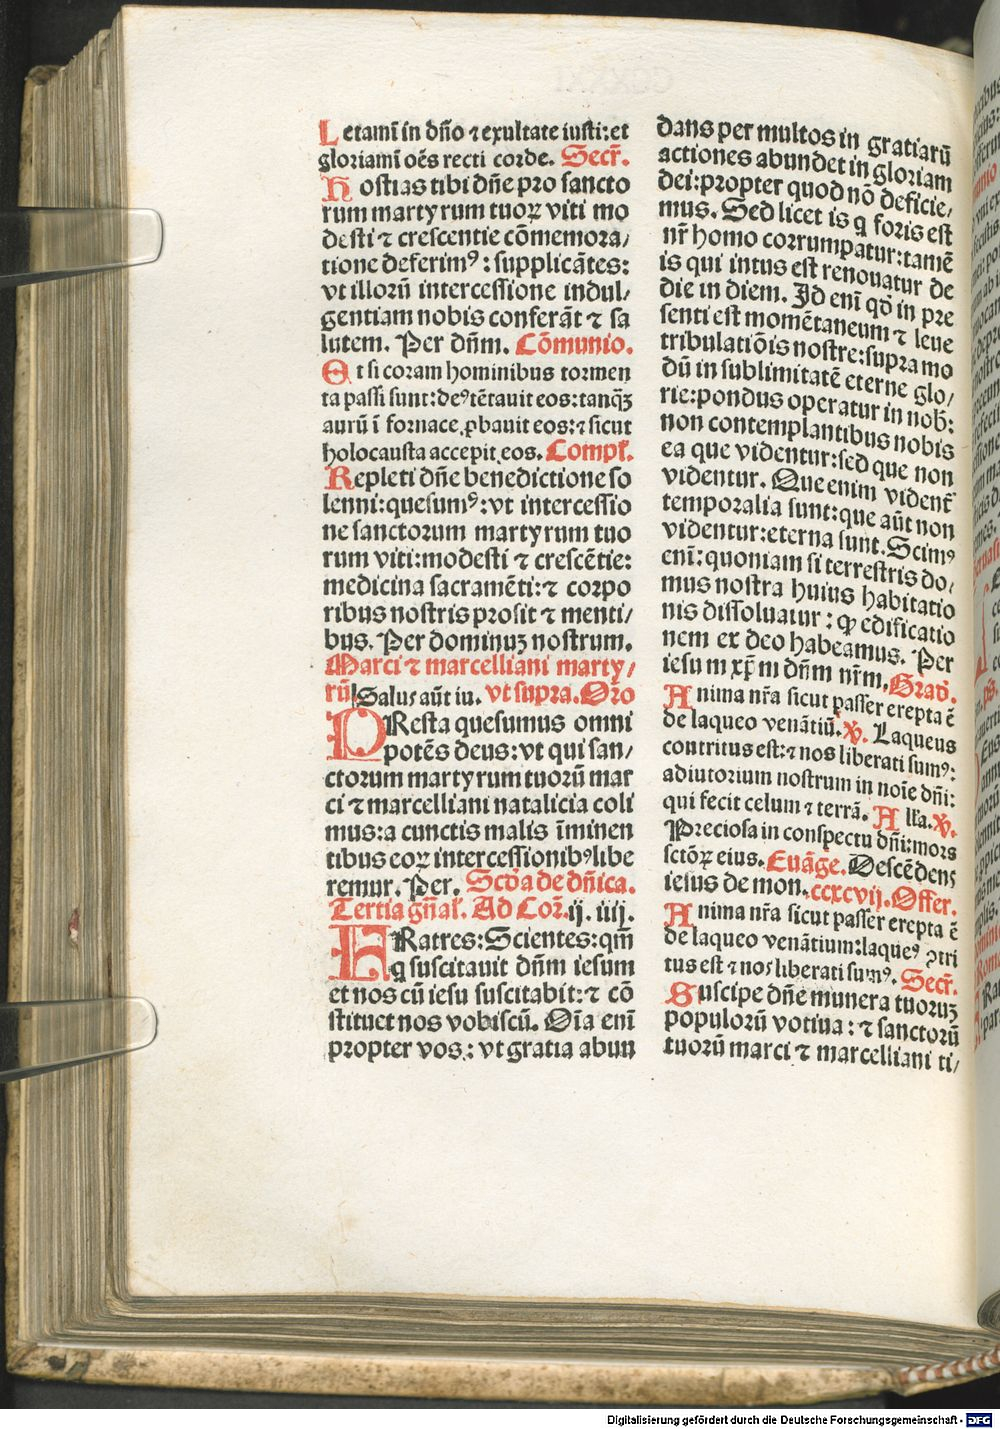 Letamī in dn̄o ⁊ exultate iusti: et
gloriamī oēs recti corde. Secr̄.
Hostias tibi dn̄e pro sancto
rum martyrum tuoꝝ viti mo
desti ⁊ crescentie cōmemora/
tione deferimꝰ: supplicātes:
vt illorū intercessione indul/
gentiam nobis conferāt ⁊ sa
lutem. Per dn̄m. Cōmunio.
Et si coram hominibus tormen
ta passi sunt: deꝰ tētauit eos: tanqꝫ
aurū ī fornace ꝓbauit eos: ⁊ sicut
holocausta accepit eos. Compl̄.
Repleti dn̄e benedictione so
lenni: quesumꝰ: vt intercessio
ne sanctorum martyrum tuo
rum viti: modesti ⁊ crescētie:
medicina sacramēti: ⁊ corpo
ribus nostris prosit ⁊ menti/
bus. Per dominuꝫ nostrum.
Marci ⁊ marcelliani marty/
rū. Salus aūt iu. vt supra. Or̄o
PResta quesumus omni
potēs deus: vt qui san/
ctorum martyrum tuorū mar
ci ⁊ marcelliani natalicia coli
mus: a cunctis malis īminen
tibus eoꝝ intercessionibꝰ libe
remur. Per. Scd̄a de dn̄ica.
Tertia gn̄al̄. Ad Coꝝ. ij. iiij.
FRatres: Scientes: qm̄
q suscitauit dn̄m iesum
et nos cū iesu suscitabit: ⁊ cō
stituet nos vobiscū. Oīa enī
propter vos: vt gratia abun
dans per multos in gratiarū
actiones abundet in gloriam
dei: propter quod nō deficie/
mus. Sed licet is q foris est
nr̄ homo corrumpatur: tamē
is qui intus est renouatur de
die in diem. Id enī qd̄ in pre
senti est momētaneum ⁊ leue
tribulatiōis nostre: supra mo
dū in sublimitatē eterne glo/
rie: pondus operatur in nob̄:
non contemplantibus nobis
ea que videntur: sed que non
videntur. Que enim vident̄
temporalia sunt: que aūt non
videntur: eterna sunt. Scimꝰ
enī: quoniam si terrestris do/
mus nostra huius habitatio
nis dissoluatur: ꝙ edificatio
nem ex deo habeamus. Per
iesum xp̄m dn̄m nr̄m. Grad̄.
Anima nr̄a sicut passer erepta ē
de laqueo venātiū. ℣. Laqueus
contritus est: ⁊ nos liberati sumꝰ:
adiutorium nostrum in noīe dn̄i:
qui fecit celum ⁊ terrā. All̄a. ℣.
Preciosa in conspectu dn̄i: mors
sctōꝝ eius. Euāge. Descēdens
iesus de mon. ccxcvij. Offer.
Anima nr̄a sicut passer erepta ē
de laqueo venātium: laqueꝰ ꝯtri
tus est ⁊ nos liberati sumꝰ. Secr̄.
Suscipe dn̄e munera tuoruꝫ
populorū votiua: ⁊ sanctorū
tuorū marci ⁊ marcelliani ti/
Digitalisierung gefördert durch die Deutsche Forschungsgemeinschaft - DFG